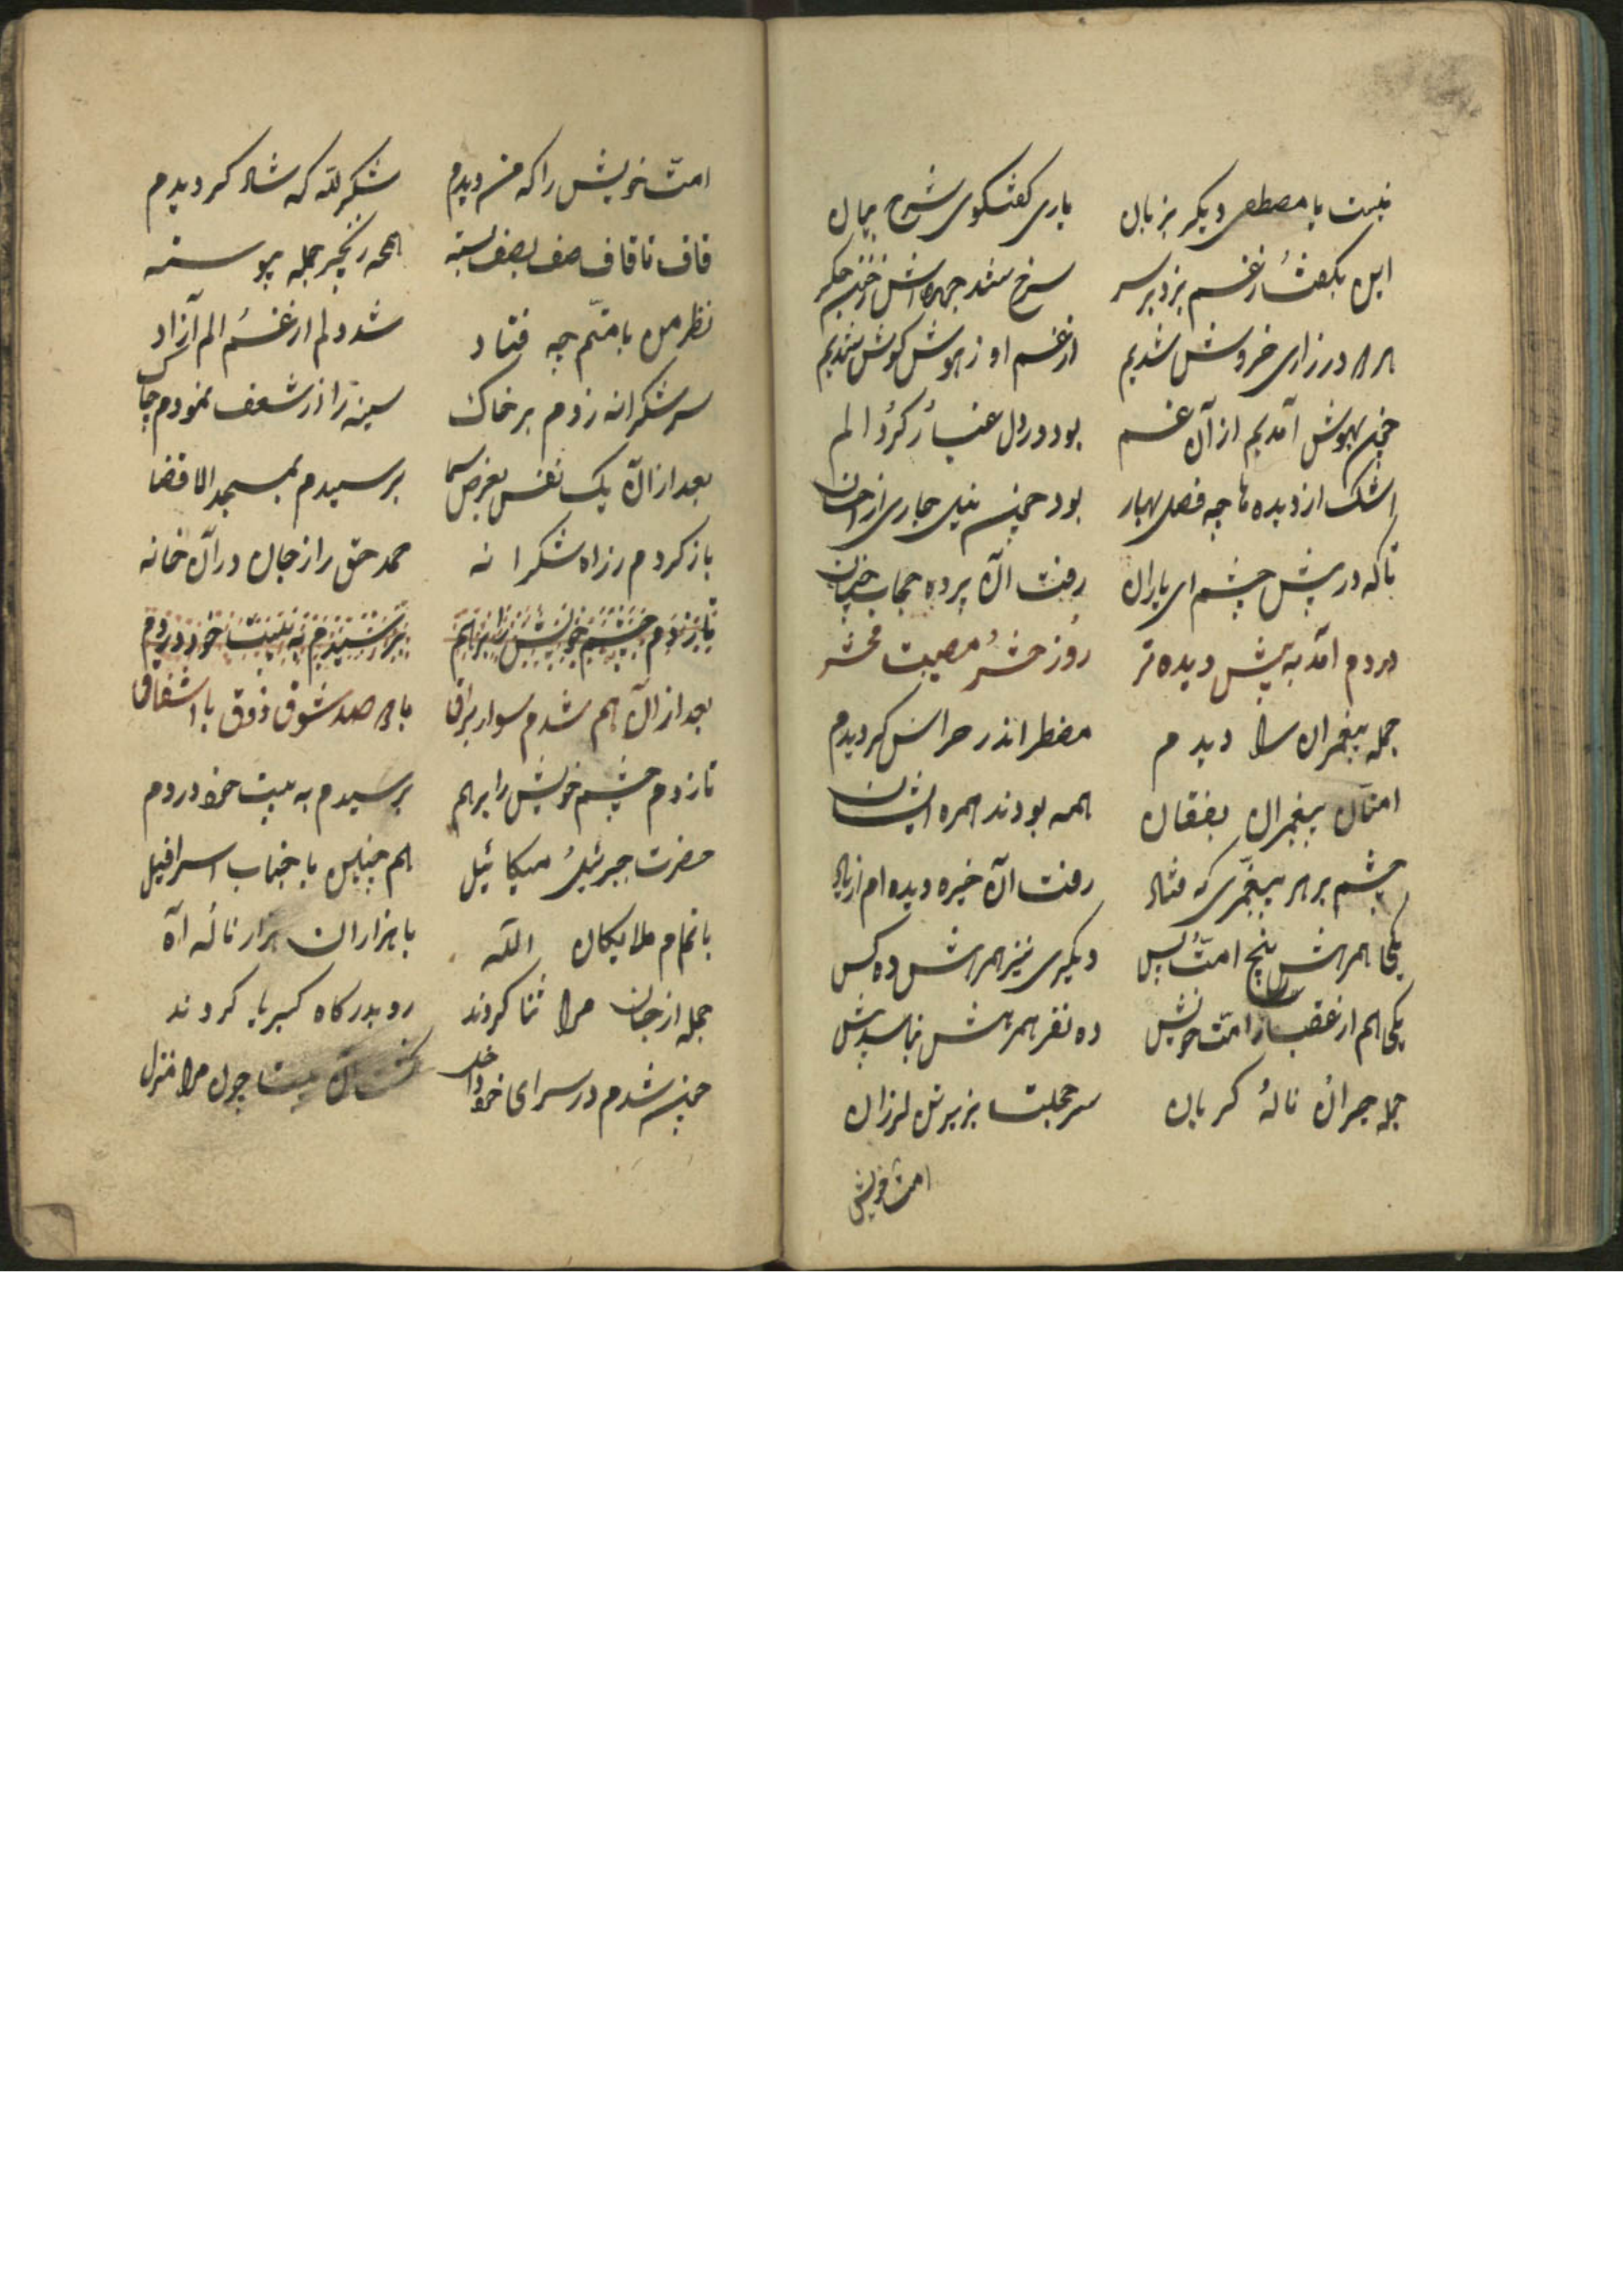 نیست با مصطفی دیگر بزبان باری گفتگوی شرح بیان
این بگفت از غم بزد بر سر سرخ شد چهره اش ز خون جگر
در زاری خروش شدیم از غم او ز هوش گوش شدیم
چون بهوش آمدیم از آن غم بود در دل غبار گرد الم
اشک از دیده ها چه فصل بهار بود چون نیل جاری از
تا که در پیش چشم ای یاران رفت آن پرده حجاب چنان
دردم آمد به پیش دیده تر روز حشر مصیبت محشر
جمله پیغمبران را دیدم مضطر اندر هراس گردیدم
امتان پیغمبران بفغان همه بودند همره ایشان
چشم بر هر پیغمبری که فتاد رفت آن خیره دیده ام از یاد
یکی همرهش پنج امت پس دیگری نیز همرهش ده کس
یکی هم از عقب ز امت خویش ده نفر همرهش نباشد بیش
جمله حیران ناله گریان سر خجلت بزیر تن لرزان
امت خویش
امت خویش را که من دیدم شکر لله که شاد گردیدم
قاف تا قاف صف بصف بسته همه زنجیر جمله پیوسته
نظر من بامتم چه فتاد شد دلم از غم الم آزاد
سر شکرانه زدم بر خاک سینه را از شعف نمودم چاک
بعد از آن یک نفس بعرض سما برسیدم بمسجد الاقضا
باز کردم ز راه شکرانه حمد حق را ز جان در آن خانه
تا زدم چشم خویش را بر هم برسیدم به بیت خود دردم
بعد از آن هم شدم سوار براق با صد شوق ذوق با اشفاق
تا زدم چشم خویش را بر هم برسیدم به بیت خود دردم
حضرت جبرئیل میکائیل هم چنین با جناب اسرافیل
با تمام ملایکان الله با هزاران هزار ناله آه
جمله از جان مرا ثنا کردند رو بدرگاه کبریا کردند
چون شدم در سرای خود داخل گشت آن بیت چون مرا منزل